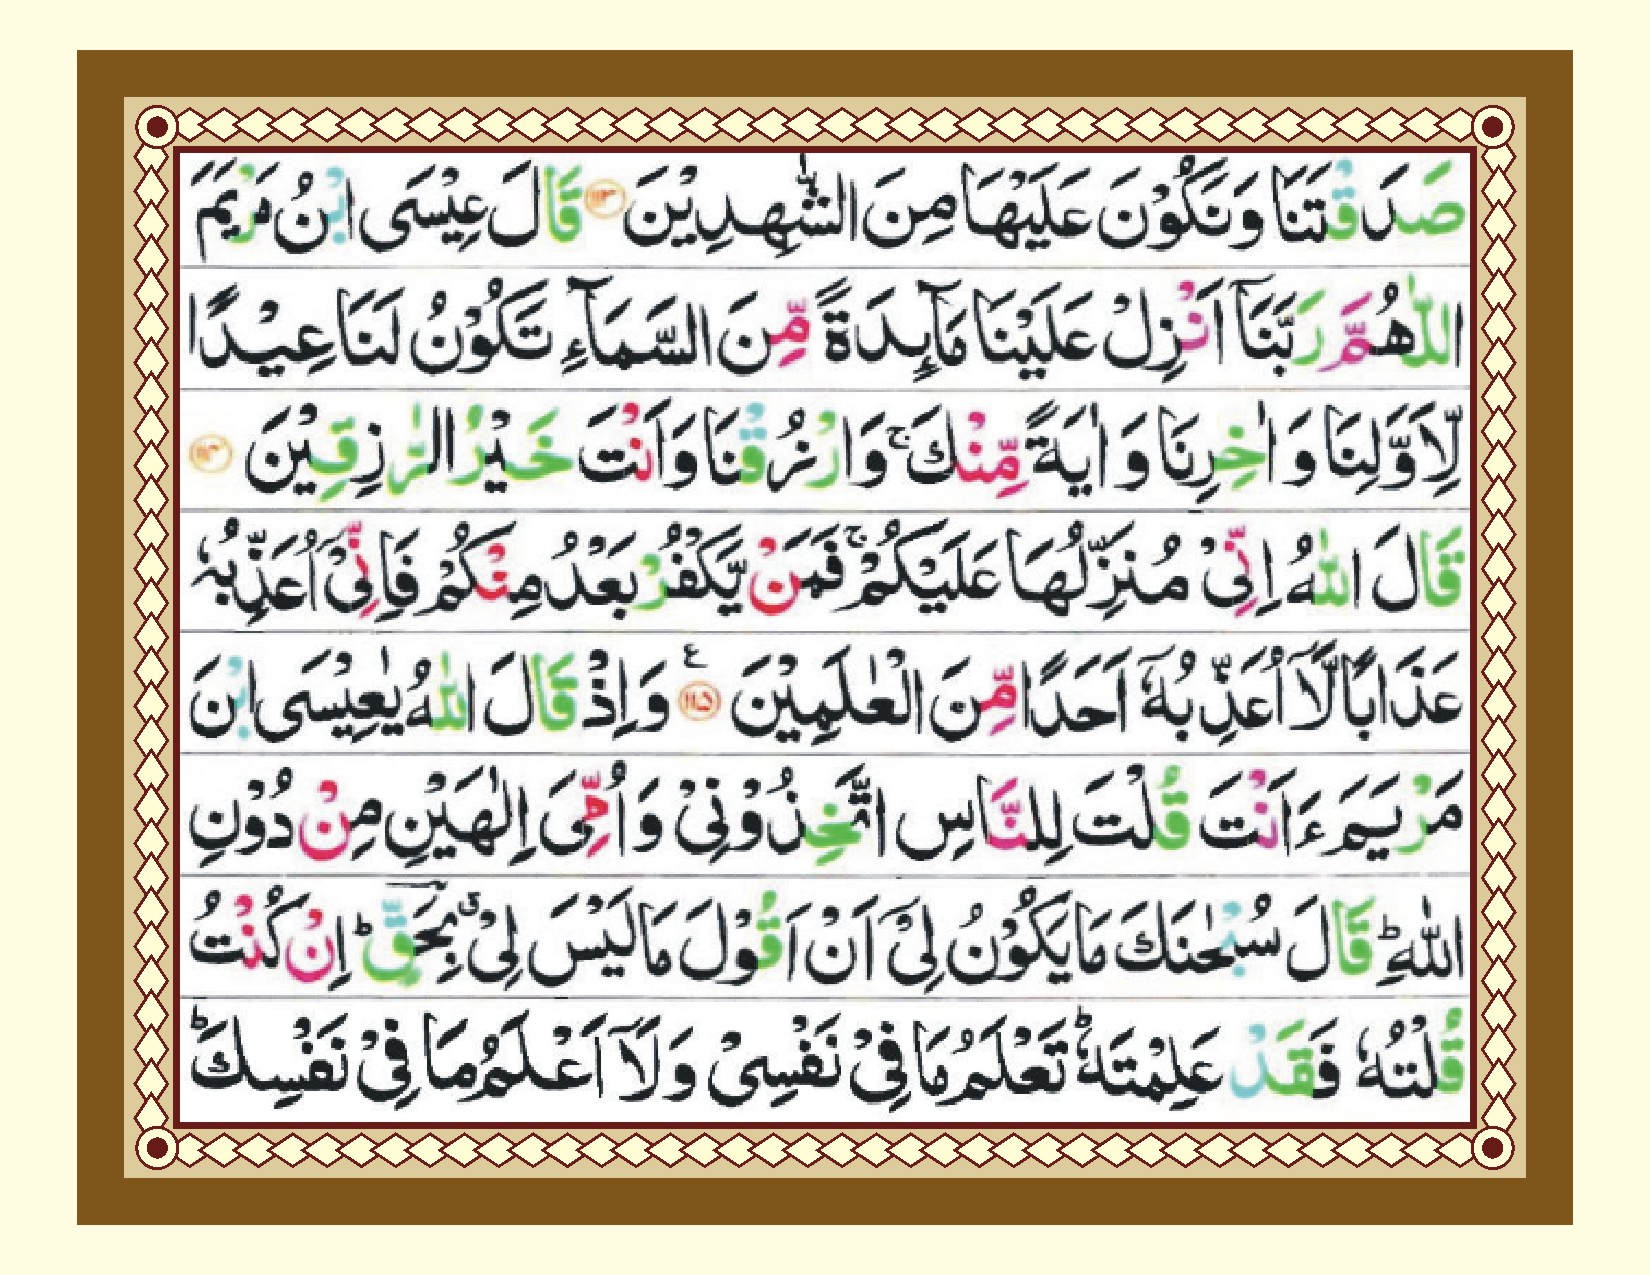 صَدَقْتَنَا وَنَكُوْنَ عَلَيْهَا مِنَ الشّٰهِدِيْنَ ﴿۱۱۳﴾ قَالَ عِيْسَى ابْنُ مَرْيَمَ
اللّٰهُمَّ رَبَّنَاۤ اَنْزِلْ عَلَيْنَا مَآىِٕدَةً مِّنَ السَّمَآءِ تَكُوْنُ لَنَا عِيْدًا
لِّاَوَّلِنَا وَ اٰخِرِنَا وَ اٰيَةً مِّنْكَ ۚ وَارْزُقْنَا وَاَنْتَ خَيْرُ الرّٰزِقِيْنَ ﴿۱۱۴﴾
قَالَ اللّٰهُ اِنِّىْ مُنَزِّلُهَا عَلَيْكُمْ ۚ فَمَنْ يَّكْفُرْ بَعْدُ مِنْكُمْ فَاِنِّىْۤ اُعَذِّبُهٗ
عَذَابًا لَّاۤ اُعَذِّبُهٗۤ اَحَدًا مِّنَ الْعٰلَمِيْنَ ﴿۱۱۵﴾ ع وَاِذْ قَالَ اللّٰهُ يٰعِيْسَى ابْنَ
مَرْيَمَ ءَاَنْتَ قُلْتَ لِلنَّاسِ اتَّخِذُوْنِىْ وَ اُمِّىَ اِلٰهَيْنِ مِنْ دُوْنِ
اللّٰهِ ؕ قَالَ سُبْحٰنَكَ مَا يَكُوْنُ لِىْۤ اَنْ اَقُوْلَ مَا لَيْسَ لِىْ ۗ بِحَقٍّ ؕ اِنْ كُنْتُ
قُلْتُهٗ فَقَدْ عَلِمْتَهٗ ؕ تَعْلَمُ مَا فِىْ نَفْسِىْ وَلَاۤ اَعْلَمُ مَا فِىْ نَفْسِكَ ؕ